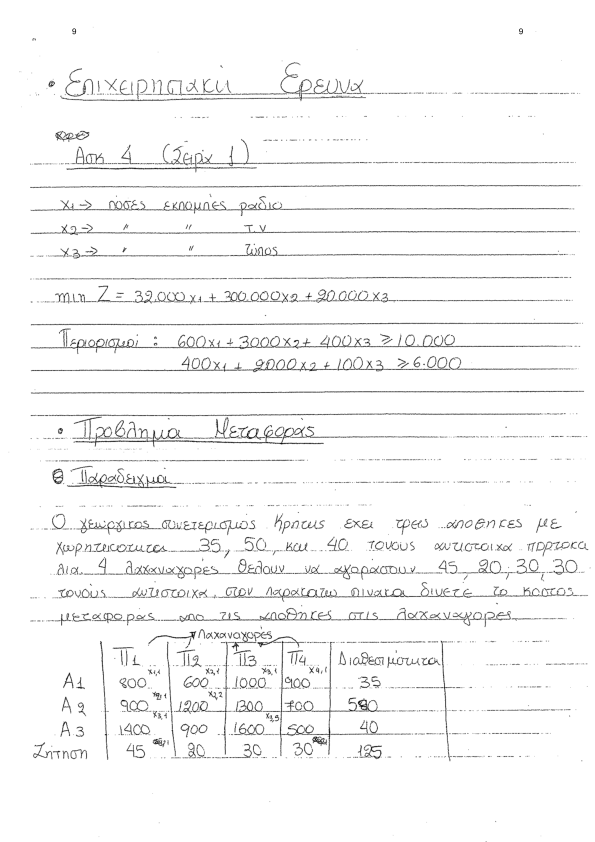 9 9
• Επιχειρησιακή Ερευνα
Ασκ 4 (Σειρά 1)
x1 -> πόσες εκπομπές ραδιο
x2 -> " " T.V
x3 -> " " τύπος
min Z = 32.000x1 + 300.000x2 + 20.000x3
Περιορισμοί : 600x1 + 3000x2 + 400x3 ≥ 10.000
400x1 + 2000x2 + 100x3 ≥ 6.000
• Προβλημα Μεταφοράς
Παραδειγμα
Ο γεωργικος συνετερισμος Κρητης εχει τρεις αποθηκες με
χωρητικοτητα 35, 50, και 40 τονους αντιστοιχα πορτοκα
λια 4 λαχαναγορες θελουν να αγορασουν 45, 20, 30, 30
τονους αντιστοιχα. στον παρακατω πινακα δινετε το κοστος
μεταφορας απο τις αποθηκες στις λαχαναγορές.
Λαχαναγορές
Π1 Π2 Π3 Π4 Διαθεσιμότητα
A1 800 600 1000 900 35
A2 900 1200 1300 700 50
A3 1400 900 1600 500 40
Ζήτηση 45 20 30 30 125